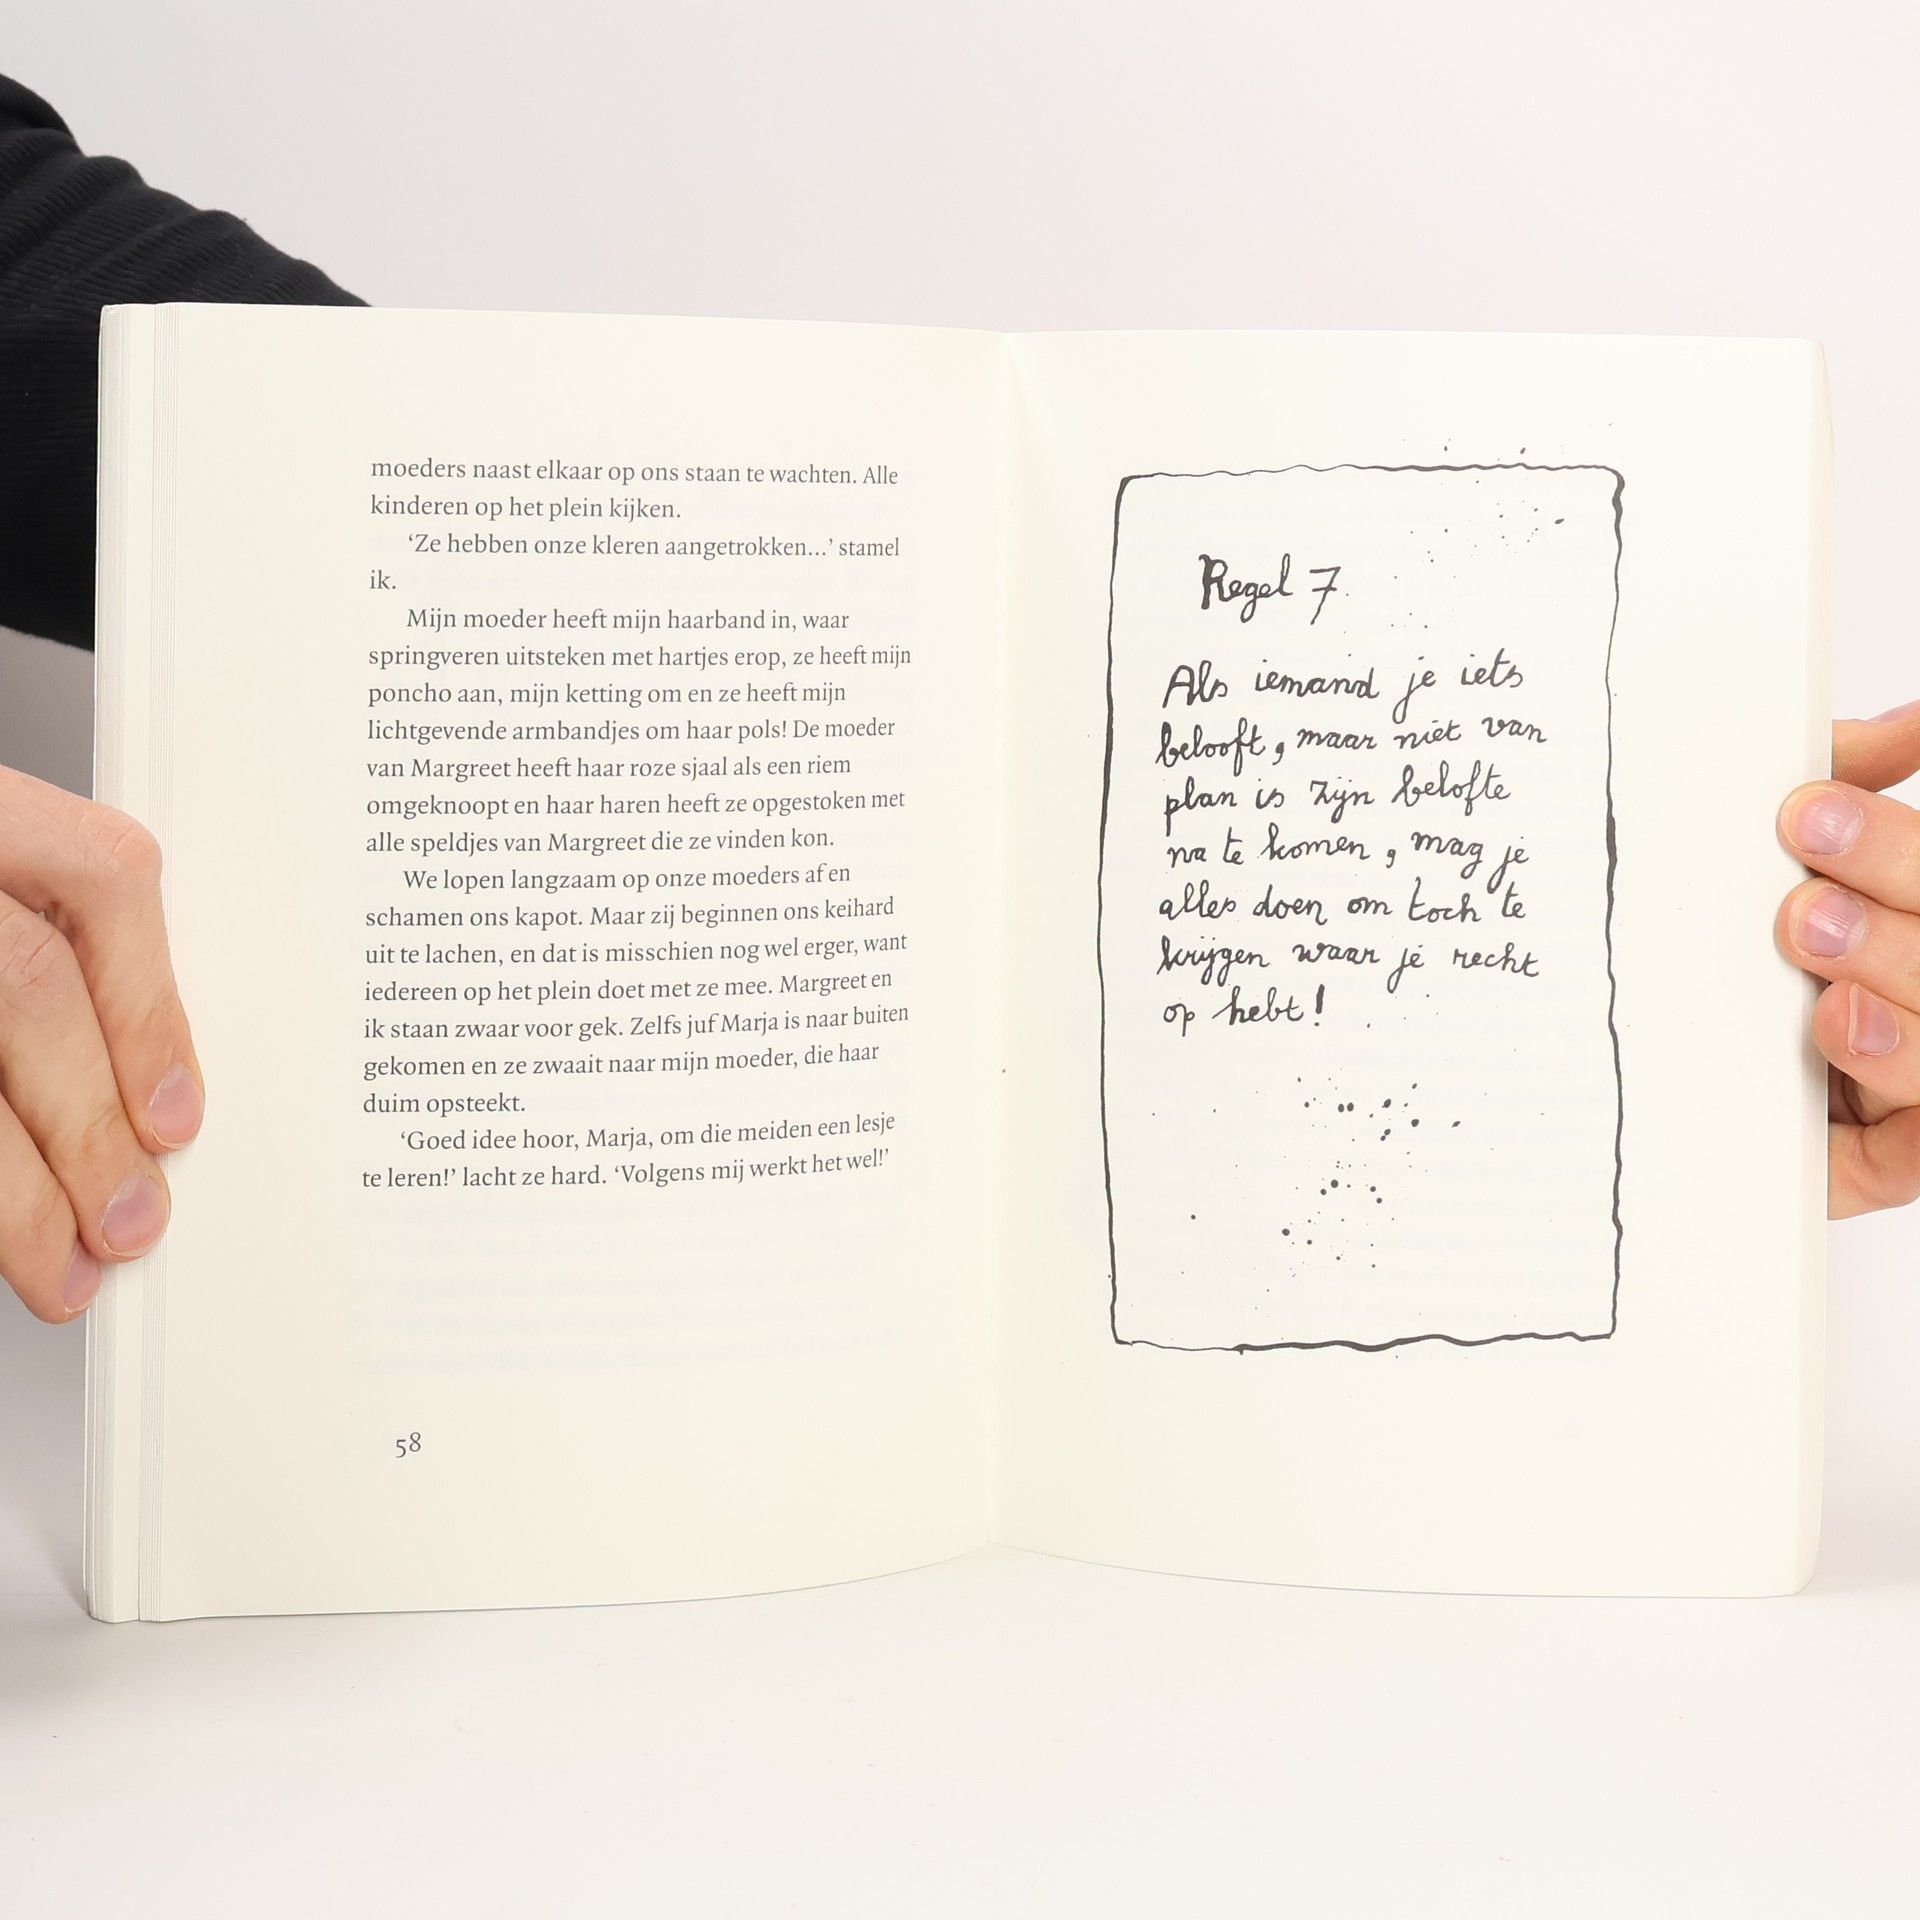 moeders naast elkaar op ons staan te wachten. Alle
kinderen op het plein kijken.
‘Ze hebben onze kleren aangetrokken...’ stamel
ik.
Mijn moeder heeft mijn haarband in, waar
springveren uitsteken met hartjes erop, ze heeft mijn
poncho aan, mijn ketting om en ze heeft mijn
lichtgevende armbandjes om haar pols! De moeder
van Margreet heeft haar roze sjaal als een riem
omgeknoopt en haar haren heeft ze opgestoken met
alle speldjes van Margreet die ze vinden kon.
We lopen langzaam op onze moeders af en
schamen ons kapot. Maar zij beginnen ons keihard
uit te lachen, en dat is misschien nog wel erger, want
iedereen op het plein doet met ze mee. Margreet en
ik staan zwaar voor gek. Zelfs juf Marja is naar buiten
gekomen en ze zwaait naar mijn moeder, die haar
duim opsteekt.
‘Goed idee hoor, Marja, om die meiden een lesje
te leren!’ lacht ze hard. ‘Volgens mij werkt het wel!’
58
Regel 7.
Als iemand je iets
belooft, maar niet van
plan is zijn belofte
na te komen, mag je
alles doen om toch te
krijgen waar je recht
op hebt!